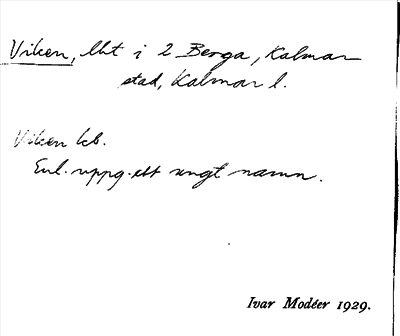 Viken, lht i 2 Berga, Kalmar
stad, Kalmar l.
Viken kb.
Enl. uppg. ett ungt namn.
Ivar Modéer 1929.